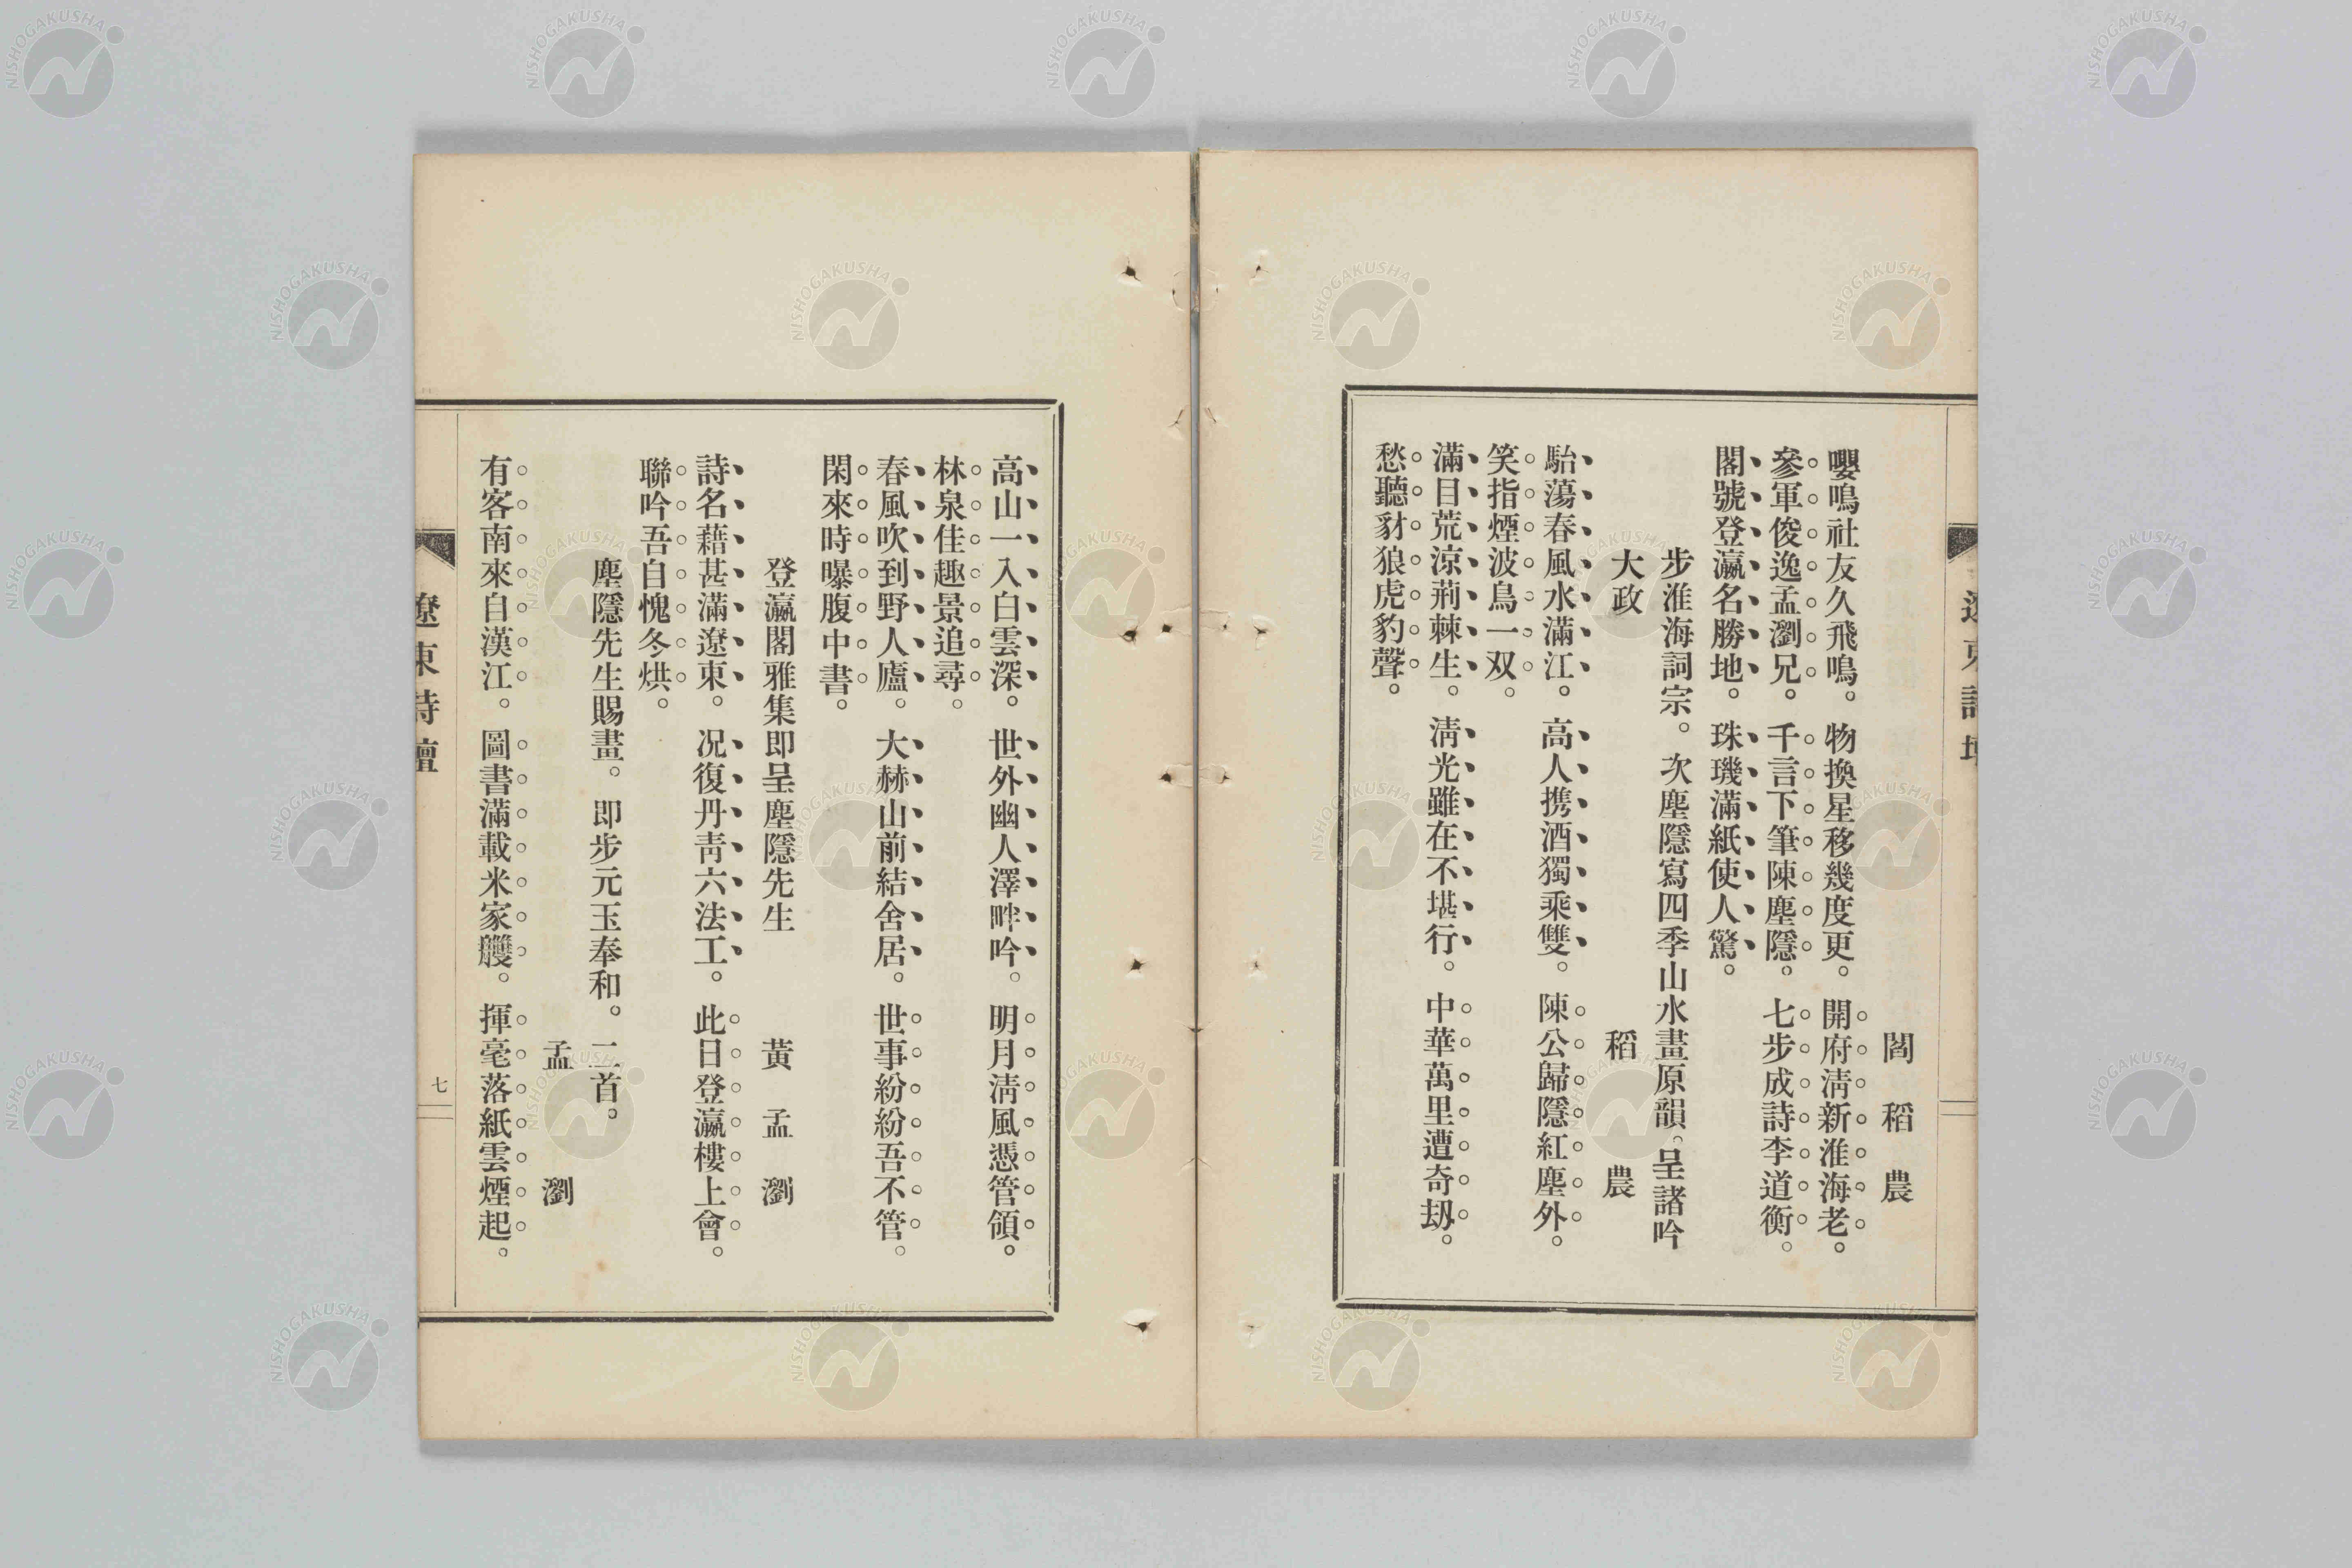 遼東詩壇
閻稻農
嚶鳴社友久飛鳴。物換星移幾度更。開府淸新淮海老。
參軍俊逸孟瀏兄。千言下筆陳塵隱。七步成詩李道衡。
閣號登瀛名勝地。珠璣滿紙使人驚。
步淮海詞宗。次塵隱寫四季山水畫原韻。呈諸吟
大政
稻農
駘蕩春風水滿江。高人携酒獨乘雙。陳公歸隱紅塵外。
笑指煙波鳥一双。
滿目荒涼荊棘生。淸光雖在不堪行。中華萬里遭奇刼。
愁聽豺狼虎豹聲。
高山一入白雲深。世外幽人澤畔吟。明月淸風憑管領。
林泉佳趣景追尋。
春風吹到野人廬。大赫山前結舍居。世事紛紛吾不管。
閑來時曝腹中書。
登瀛閣雅集即呈塵隱先生
黃孟瀏
詩名藉甚滿遼東。况復丹靑六法工。此日登瀛樓上會。
聯吟吾自愧冬烘。
塵隱先生賜畫。即步元玉奉和。二首。
孟瀏
有客南來自漢江。圖書滿載米家艭。揮毫落紙雲煙起。
遼東詩壇
七
NISHOGAKUSHA